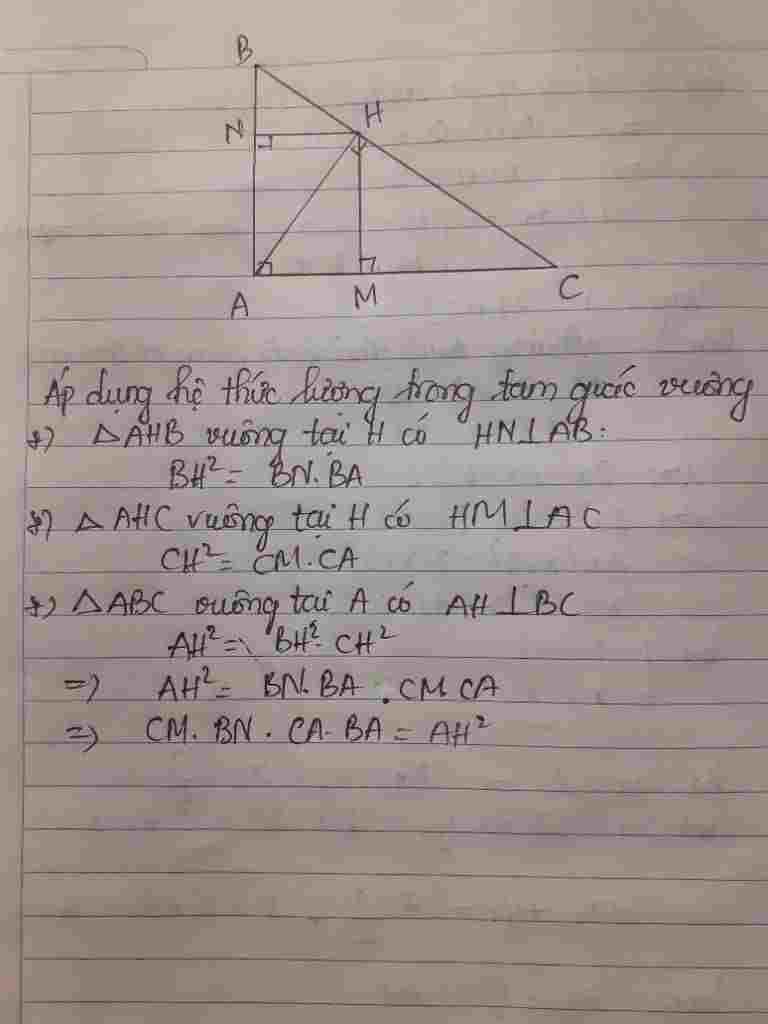 B
N
H
A
M
C
Áp dụng hệ thức lượng trong tam guác vuông
*) △AHB vuông tại H có HN⊥AB:
BH² = BN.BA
*) △AHC vuông tại H có HM⊥AC
CH² = CM.CA
*) △ABC vuông tại A có AH⊥BC
AH² = BH². CH²
=) AH² = BN.BA . CM.CA
=) CM. BN. CA. BA = AH²